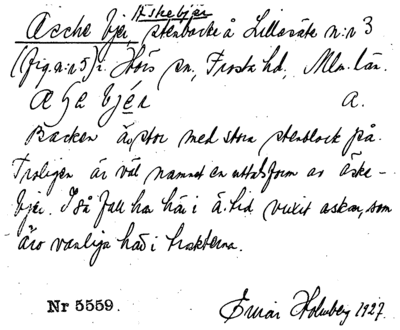 Äskebjer
Assche bjer, stenbacke å Lillasäte n:r 3
(fig. n:r 5) i Hörs sn, Frosta hd, Mlm. län.
a.
Backen är stor med stora stenblock på.
Troligen är väl namnet en uttalsform av äske-
bjer. I så fall ha här i ä. tid vuxit askar, som
äro vanliga här i trakterna.
Nr 5559.
Einar Holmberg 1927.